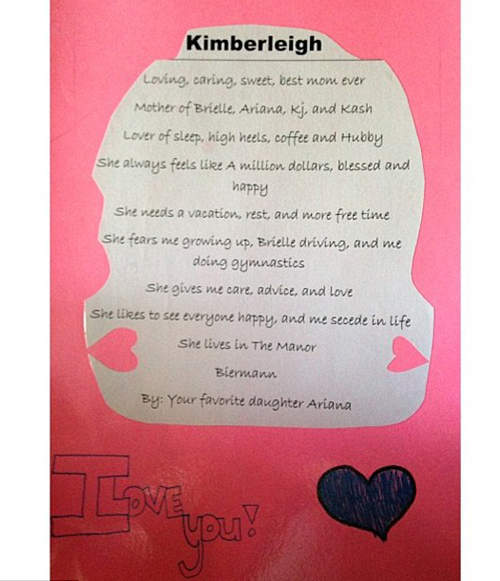 Kimberleigh
Loving, caring, sweet, best mom ever
Mother of Brielle, Ariana, Kj, and Kash
Lover of sleep, high heels, coffee and Hubby
She always feels like A million dollars, blessed and
happy
She needs a vacation, rest, and more free time
She fears me growing up, Brielle driving, and me
doing gymnastics
She gives me care, advice, and love
She likes to see everyone happy, and me secede in life
She lives in The Manor
Biermann
By: Your favorite daughter Ariana
I Love
you!